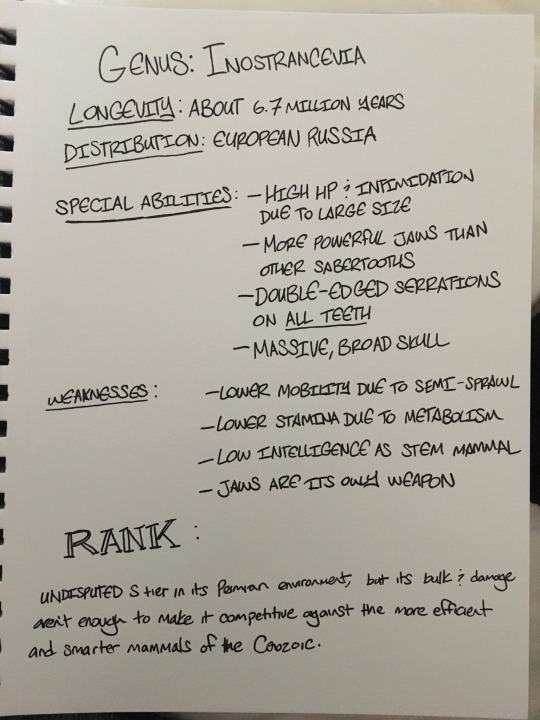 GENUS: INOSTRANCEVIA
LONGEVITY: ABOUT 6.7 MILLION YEARS
DISTRIBUTION: EUROPEAN RUSSIA
SPECIAL ABILITIES: - HIGH HP & INTIMIDATION
DUE TO LARGE SIZE
- MORE POWERFUL JAWS THAN
OTHER SABERTOOTHS
- DOUBLE-EDGED SERRATIONS
ON ALL TEETH
- MASSIVE, BROAD SKULL
WEAKNESSES: - LOWER MOBILITY DUE TO SEMI-SPRAWL
- LOWER STAMINA DUE TO METABOLISM
- LOW INTELLIGENCE AS STEM MAMMAL
- JAWS ARE ITS ONLY WEAPON
RANK:
UNDISPUTED S tier in its Permian environment, but its bulk & damage
aren't enough to make it competitive against the more efficient
and smarter mammals of the Cenozoic.